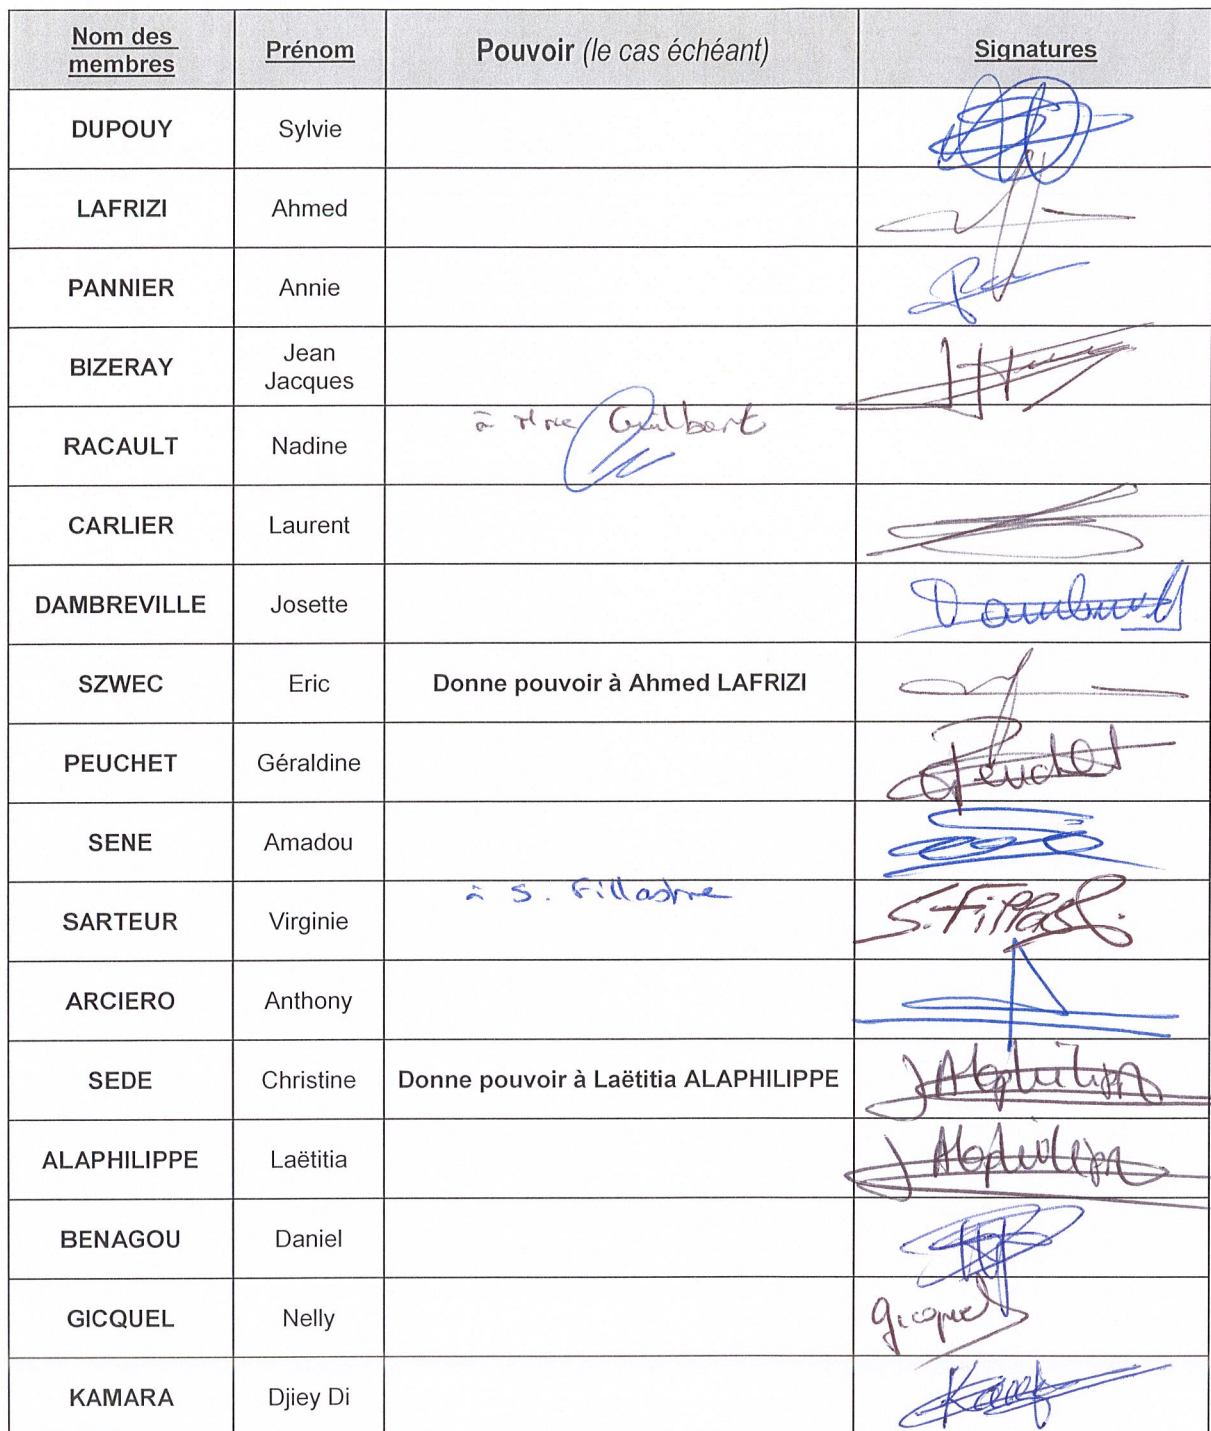 Nom des membres Prénom Pouvoir (le cas échéant) Signatures
DUPOUY Sylvie
LAFRIZI Ahmed
PANNIER Annie
BIZERAY Jean Jacques
RACAULT Nadine à Mme Guilbert
CARLIER Laurent
DAMBREVILLE Josette
SZWEC Eric Donne pouvoir à Ahmed LAFRIZI
PEUCHET Géraldine Peuchet
SENE Amadou
SARTEUR Virginie à S. Fillastre
ARCIERO Anthony
SEDE Christine Donne pouvoir à Laëtitia ALAPHILIPPE
ALAPHILIPPE Laëtitia
BENAGOU Daniel
GICQUEL Nelly Gicquel
KAMARA Djiey Di